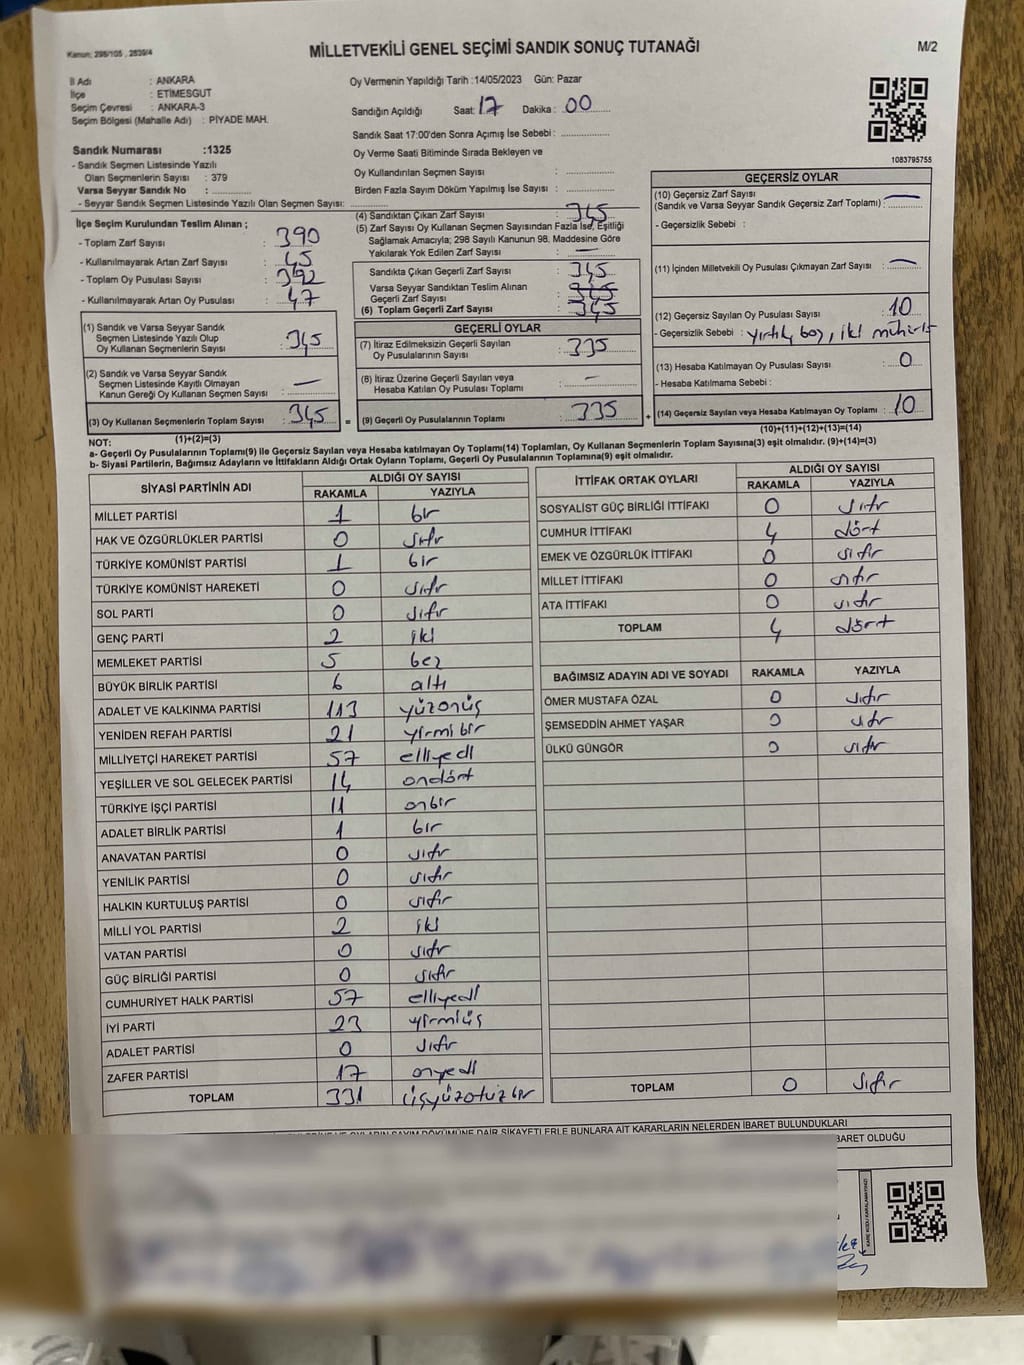 Kanun: 298/105 , 2839/4
MİLLETVEKİLİ GENEL SEÇİMİ SANDIK SONUÇ TUTANAĞI
M/2
İl Adı : ANKARA
İlçe : ETİMESGUT
Seçim Çevresi : ANKARA-3
Seçim Bölgesi (Mahalle Adı) : PİYADE MAH.
Oy Vermenin Yapıldığı Tarih :14/05/2023 Gün: Pazar
Sandığın Açıldığı Saat: 17 Dakika : 00
Sandık Saat 17:00'den Sonra Açımış İse Sebebi :
Oy Verme Saati Bitiminde Sırada Bekleyen ve
Oy Kullandırılan Seçmen Sayısı :
Birden Fazla Sayım Döküm Yapılmış İse Sayısı :
1083795755
Sandık Numarası :1325
- Sandık Seçmen Listesinde Yazılı
Olan Seçmenlerin Sayısı : 379
Varsa Seyyar Sandık No :
- Seyyar Sandık Seçmen Listesinde Yazılı Olan Seçmen Sayısı:
İlçe Seçim Kurulundan Teslim Alınan ;
- Toplam Zarf Sayısı : 390
- Kullanılmayarak Artan Zarf Sayısı : 45
- Toplam Oy Pusulası Sayısı : 392
- Kullanılmayarak Artan Oy Pusulası : 47
(1) Sandık ve Varsa Seyyar Sandık
Seçmen Listesinde Yazılı Olup
Oy Kullanan Seçmenlerin Sayısı : 345
(2) Sandık ve Varsa Seyyar Sandık
Seçmen Listesinde Kayıtlı Olmayan
Kanun Gereği Oy Kullanan Seçmen Sayısı : —
(3) Oy Kullanan Seçmenlerin Toplam Sayısı : 345 =
(1)+(2)=(3)
(4) Sandıktan Çıkan Zarf Sayısı : 345
(5) Zarf Sayısı Oy Kullanan Seçmen Sayısından Fazla İse, Eşitliği
Sağlamak Amacıyla; 298 Sayılı Kanunun 98. Maddesine Göre
Yakılarak Yok Edilen Zarf Sayısı : —
Sandıkta Çıkan Geçerli Zarf Sayısı : 345
Varsa Seyyar Sandıktan Teslim Alınan
Geçerli Zarf Sayısı : 345
(6) Toplam Geçerli Zarf Sayısı : 345
GEÇERLİ OYLAR
(7) İtiraz Edilmeksizin Geçerli Sayılan
Oy Pusulalarının Sayısı : 335
(8) İtiraz Üzerine Geçerli Sayılan veya
Hesaba Katılan Oy Pusulası Toplamı : —
(9) Geçerli Oy Pusulalarının Toplamı : 335 +
GEÇERSİZ OYLAR
(10) Geçersiz Zarf Sayısı : —
(Sandık ve Varsa Seyyar Sandık Geçersiz Zarf Toplamı)
- Geçersizlik Sebebi :
(11) İçinden Milletvekili Oy Pusulası Çıkmayan Zarf Sayısı : —
(12) Geçersiz Sayılan Oy Pusulası Sayısı : 10
- Geçersizlik Sebebi : yırtık, boş, iki mühürlü
(13) Hesaba Katılmayan Oy Pusulası Sayısı : 0
- Hesaba Katılmama Sebebi :
(14) Geçersiz Sayılan veya Hesaba Katılmayan Oy Toplamı : 10
(10)+(11)+(12)+(13)=(14)
NOT:
a- Geçerli Oy Pusulalarının Toplamı(9) ile Geçersiz Sayılan veya Hesaba katılmayan Oy Toplamı(14) Toplamları, Oy Kullanan Seçmenlerin Toplam Sayısına(3) eşit olmalıdır. (9)+(14)=(3)
b- Siyasi Partilerin, Bağımsız Adayların ve İttifakların Aldığı Ortak Oyların Toplamı, Geçerli Oy Pusulalarının Toplamına(9) eşit olmalıdır.
SİYASİ PARTİNİN ADI ALDIĞI OY SAYISI
RAKAMLA YAZIYLA
MİLLET PARTİSİ 1 bir
HAK VE ÖZGÜRLÜKLER PARTİSİ 0 sıfır
TÜRKİYE KOMÜNİST PARTİSİ 1 bir
TÜRKİYE KOMÜNİST HAREKETİ 0 sıfır
SOL PARTİ 0 sıfır
GENÇ PARTİ 2 iki
MEMLEKET PARTİSİ 5 beş
BÜYÜK BİRLİK PARTİSİ 6 altı
ADALET VE KALKINMA PARTİSİ 113 yüzonüç
YENİDEN REFAH PARTİSİ 21 yirmi bir
MİLLİYETÇİ HAREKET PARTİSİ 57 elliyedi
YEŞİLLER VE SOL GELECEK PARTİSİ 14 ondört
TÜRKİYE İŞÇİ PARTİSİ 11 onbir
ADALET BİRLİK PARTİSİ 1 bir
ANAVATAN PARTİSİ 0 sıfır
YENİLİK PARTİSİ 0 sıfır
HALKIN KURTULUŞ PARTİSİ 0 sıfır
MİLLİ YOL PARTİSİ 2 iki
VATAN PARTİSİ 0 sıfır
GÜÇ BİRLİĞİ PARTİSİ 0 sıfır
CUMHURİYET HALK PARTİSİ 57 elliyedi
İYİ PARTİ 23 yirmiüç
ADALET PARTİSİ 0 sıfır
ZAFER PARTİSİ 17 onyedi
TOPLAM 331 üçyüzotuzbir
İTTİFAK ORTAK OYLARI ALDIĞI OY SAYISI
RAKAMLA YAZIYLA
SOSYALİST GÜÇ BİRLİĞİ İTTİFAKI 0 sıfır
CUMHUR İTTİFAKI 4 dört
EMEK VE ÖZGÜRLÜK İTTİFAKI 0 sıfır
MİLLET İTTİFAKI 0 sıfır
ATA İTTİFAKI 0 sıfır
TOPLAM 4 dört
BAĞIMSIZ ADAYIN ADI VE SOYADI RAKAMLA YAZIYLA
ÖMER MUSTAFA ÖZAL 0 sıfır
ŞEMSEDDİN AHMET YAŞAR 0 sıfır
ÜLKÜ GÜNGÖR 0 sıfır
TOPLAM 0 sıfır
OYLARIN SAYIM DÖKÜMÜNE DAİR ŞİKAYETLERLE BUNLARA AİT KARARLARIN NELERDEN İBARET BULUNDUKLARI
BARET OLDUĞU